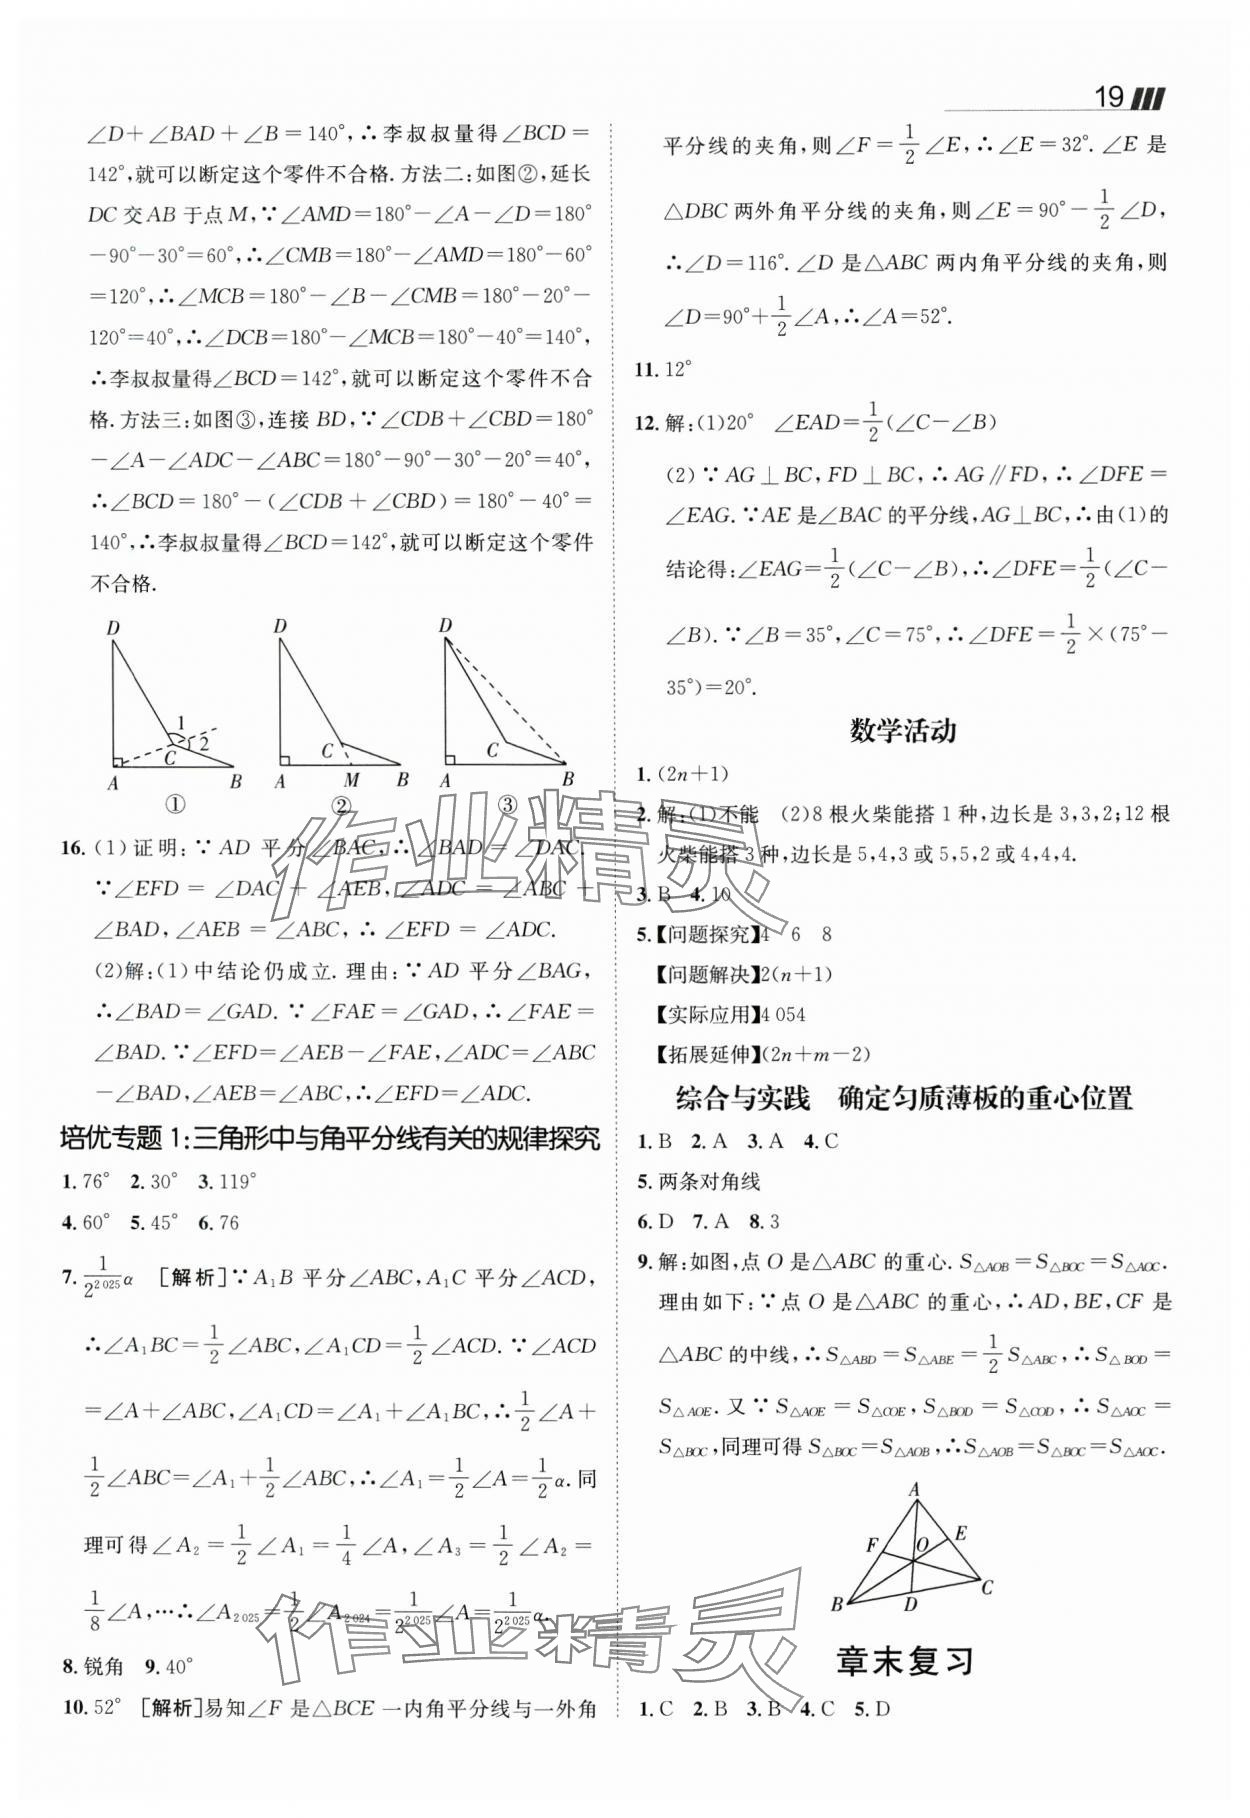 19
∠D+∠BAD+∠B=140°,∴李叔叔量得∠BCD=
142°,就可以断定这个零件不合格.方法二:如图②,延长
DC交AB于点M,∵∠AMD=180°-∠A-∠D=180°
-90°-30°=60°,∴∠CMB=180°-∠AMD=180°-60°
=120°,∴∠MCB=180°-∠B-∠CMB=180°-20°-
120°=40°,∴∠DCB=180°-∠MCB=180°-40°=140°,
∴李叔叔量得∠BCD=142°,就可以断定这个零件不合
格.方法三:如图③,连接BD,∵∠CDB+∠CBD=180°
-∠A-∠ADC-∠ABC=180°-90°-30°-20°=40°,
∴∠BCD=180°-(∠CDB+∠CBD)=180°-40°=
140°,∴李叔叔量得∠BCD=142°,就可以断定这个零件
不合格.
D D D
1 2 C C C
A B A M B A B
① ② ③
16.(1)证明:∵AD平分∠BAC,∴∠BAD=∠DAC.
∵∠EFD=∠DAC+∠AEB,∠ADC=∠ABC+
∠BAD,∠AEB=∠ABC,∴∠EFD=∠ADC.
(2)解:(1)中结论仍成立.理由:∵AD平分∠BAG,
∴∠BAD=∠GAD.∵∠FAE=∠GAD,∴∠FAE=
∠BAD.∵∠EFD=∠AEB-∠FAE,∠ADC=∠ABC
-∠BAD,∠AEB=∠ABC,∴∠EFD=∠ADC.
培优专题1:三角形中与角平分线有关的规律探究
1.76° 2.30° 3.119°
4.60° 5.45° 6.76
7.1/2^2025 α [解析]∵A₁B平分∠ABC,A₁C平分∠ACD,
∴∠A₁BC=1/2∠ABC,∠A₁CD=1/2∠ACD.∵∠ACD
=∠A+∠ABC,∠A₁CD=∠A₁+∠A₁BC,∴1/2∠A+
1/2∠ABC=∠A₁+1/2∠ABC,∴∠A₁=1/2∠A=1/2α.同
理可得∠A₂=1/2∠A₁=1/4∠A,∠A₃=1/2∠A₂=
1/8∠A,…∴∠A₂₀₂₅=1/2∠A₂₀₂₄=1/2^2025∠A=1/2^2025 α.
8.锐角 9.40°
10.52° [解析]易知∠F是△BCE一内角平分线与一外角
平分线的夹角,则∠F=1/2∠E,∴∠E=32°.∠E是
△DBC两外角平分线的夹角,则∠E=90°-1/2∠D,
∴∠D=116°.∠D是△ABC两内角平分线的夹角,则
∠D=90°+1/2∠A,∴∠A=52°.
11.12°
12.解:(1)20° ∠EAD=1/2(∠C-∠B)
(2)∵AG⊥BC,FD⊥BC,∴AG∥FD,∴∠DFE=
∠EAG.∵AE是∠BAC的平分线,AG⊥BC,∴由(1)的
结论得:∠EAG=1/2(∠C-∠B),∴∠DFE=1/2(∠C-
∠B).∵∠B=35°,∠C=75°,∴∠DFE=1/2×(75°-
35°)=20°.
数学活动
1.(2n+1)
2.解:(1)不能 (2)8根火柴能搭1种,边长是3,3,2;12根
火柴能搭3种,边长是5,4,3或5,5,2或4,4,4.
3.B 4.10
5.【问题探究】4 6 8
【问题解决】2(n+1)
【实际应用】4 054
【拓展延伸】(2n+m-2)
综合与实践 确定匀质薄板的重心位置
1.B 2.A 3.A 4.C
5.两条对角线
6.D 7.A 8.3
9.解:如图,点O是△ABC的重心.S△AOB=S△BOC=S△AOC.
理由如下:∵点O是△ABC的重心,∴AD,BE,CF是
△ABC的中线,∴S△ABD=S△ABE=1/2S△ABC,∴S△BOD=
S△AOE.又∵S△AOE=S△COE,S△BOD=S△COD,∴S△AOC=
S△BOC,同理可得S△BOC=S△AOB,∴S△AOB=S△BOC=S△AOC.
A
F O E
B D C
章末复习
1.C 2.B 3.B 4.C 5.D
作业精灵
作业精灵